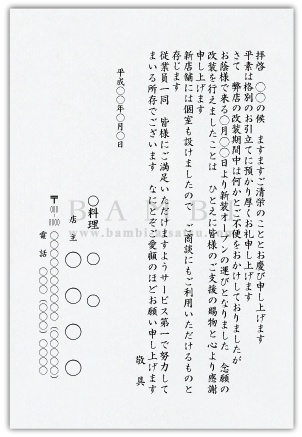 拝啓　○○の候　ますますご清栄のこととお慶び申し上げます
平素は格別のお引立てに預かり厚くお礼申し上げます
さて　弊店の改装期間中は何かとご不便をおかけしておりましたが
お陰様で来る○月○○日より新装オープンの運びとなりました　念願の
改装を行えましたことは　ひとえに皆様のご支援の賜物と心より感謝
申し上げます
新店舗には個室も設けましたので　ご商談にもご利用いただけるものと
存じます
従業員一同　皆様にご満足いただけますようサービス第一で努力して
まいる所存でございます　なにとぞご愛顧のほどお願い申し上げます
敬具
平成○○年○月○日
○料理　○　○
店主　○　○　○　○
〒○○○-○○○○　○○○○○○○○○○○○
電話　○○○(○○○)○○○○
BAMBI
www.bambi-insatsu.co.jp